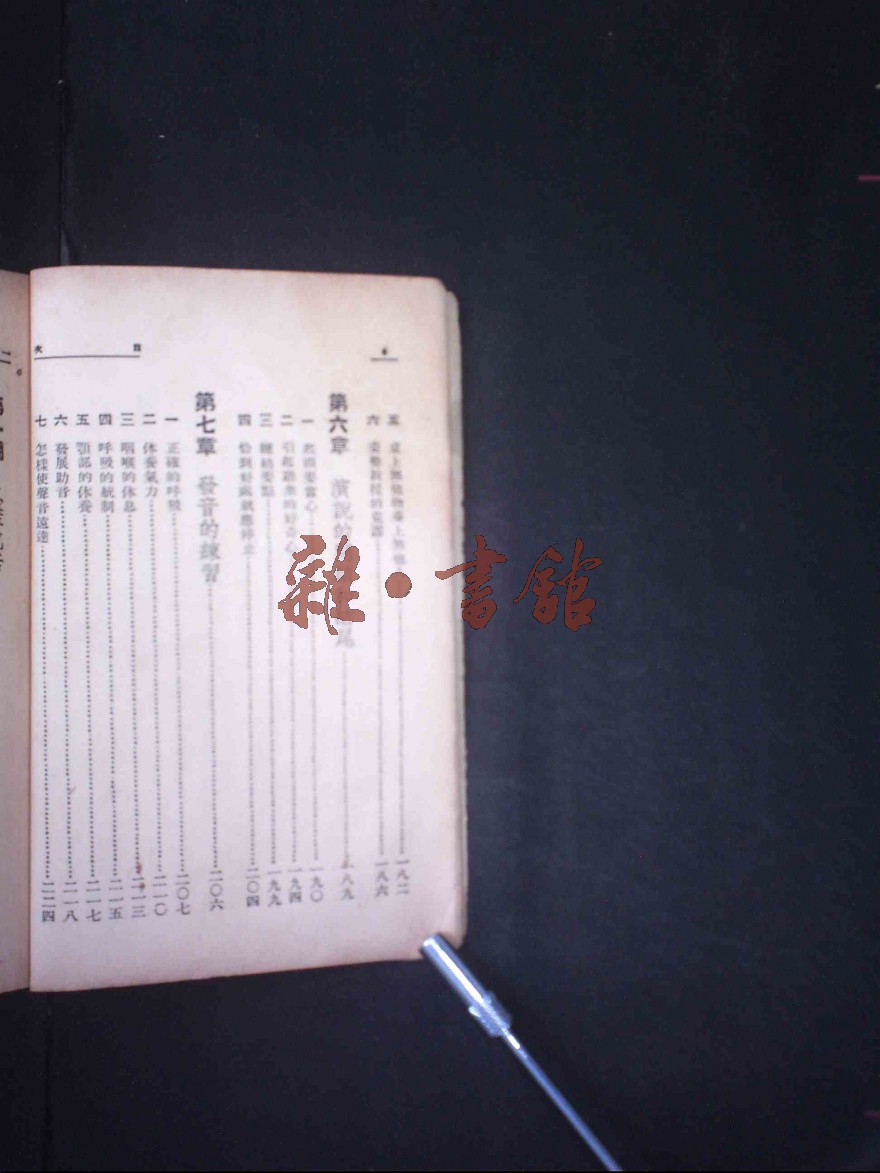 目 次
6
五 桌上無他物臺上無他………一八二
六 姿勢教授的荒謬………一八六
第六章 演說的尾………一八九
一 起頭要當心………一九〇
二 引起聽衆的好奇心………一九四
三 總結要點………一九九
四 恰到好處就應停止………二〇四
第七章 發音的練習………二〇六
一 正確的呼吸………二〇七
二 休養氣力………二一〇
三 咽喉的休息………二一三
四 呼吸的統制………二一五
五 顎部的休養………二一七
六 發展助音………二一八
七 怎樣使聲音遠達………二二四
雜·書館